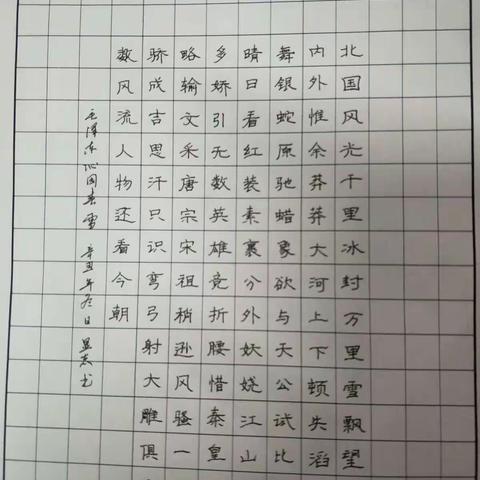 北国风光千里冰封万里雪飘望
内外惟余莽莽大河上下顿失滔
舞银蛇原驰蜡象欲与天公试比
晴日看红装素裹分外妖娆江山
多娇引无数英雄竞折腰惜秦皇
略输文采唐宗宋祖稍逊风骚一
骄成吉思汗只识弯弓射大雕俱
数风流人物还看今朝
毛泽东沁园春雪 辛丑年冬日 书